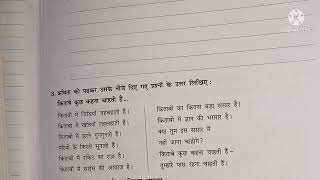 3. कविता को पढ़कर उसके नीचे दिए गए प्रश्नों के उत्तर लिखिए :
किताबें कुछ कहना चाहती हैं—
किताबों में चिड़ियाँ चहचहाती हैं।
किताबों में खेतियाँ लहलहाती हैं।
किताबों में झरने गुनगुनाते हैं।
परियों के किस्से सुनाते हैं।
किताबों में रॉकेट का राज़ है।
किताबों में साइंस की आवाज़ है।
किताबों का कितना बड़ा संसार है!
किताबों में ज्ञान की भरमार है।
क्या तुम इस संसार में
नहीं जाना चाहोगे?
किताबें कुछ कहना चाहती हैं—
तुम्हारे पास रहना चाहती हैं।
KINEMASTER